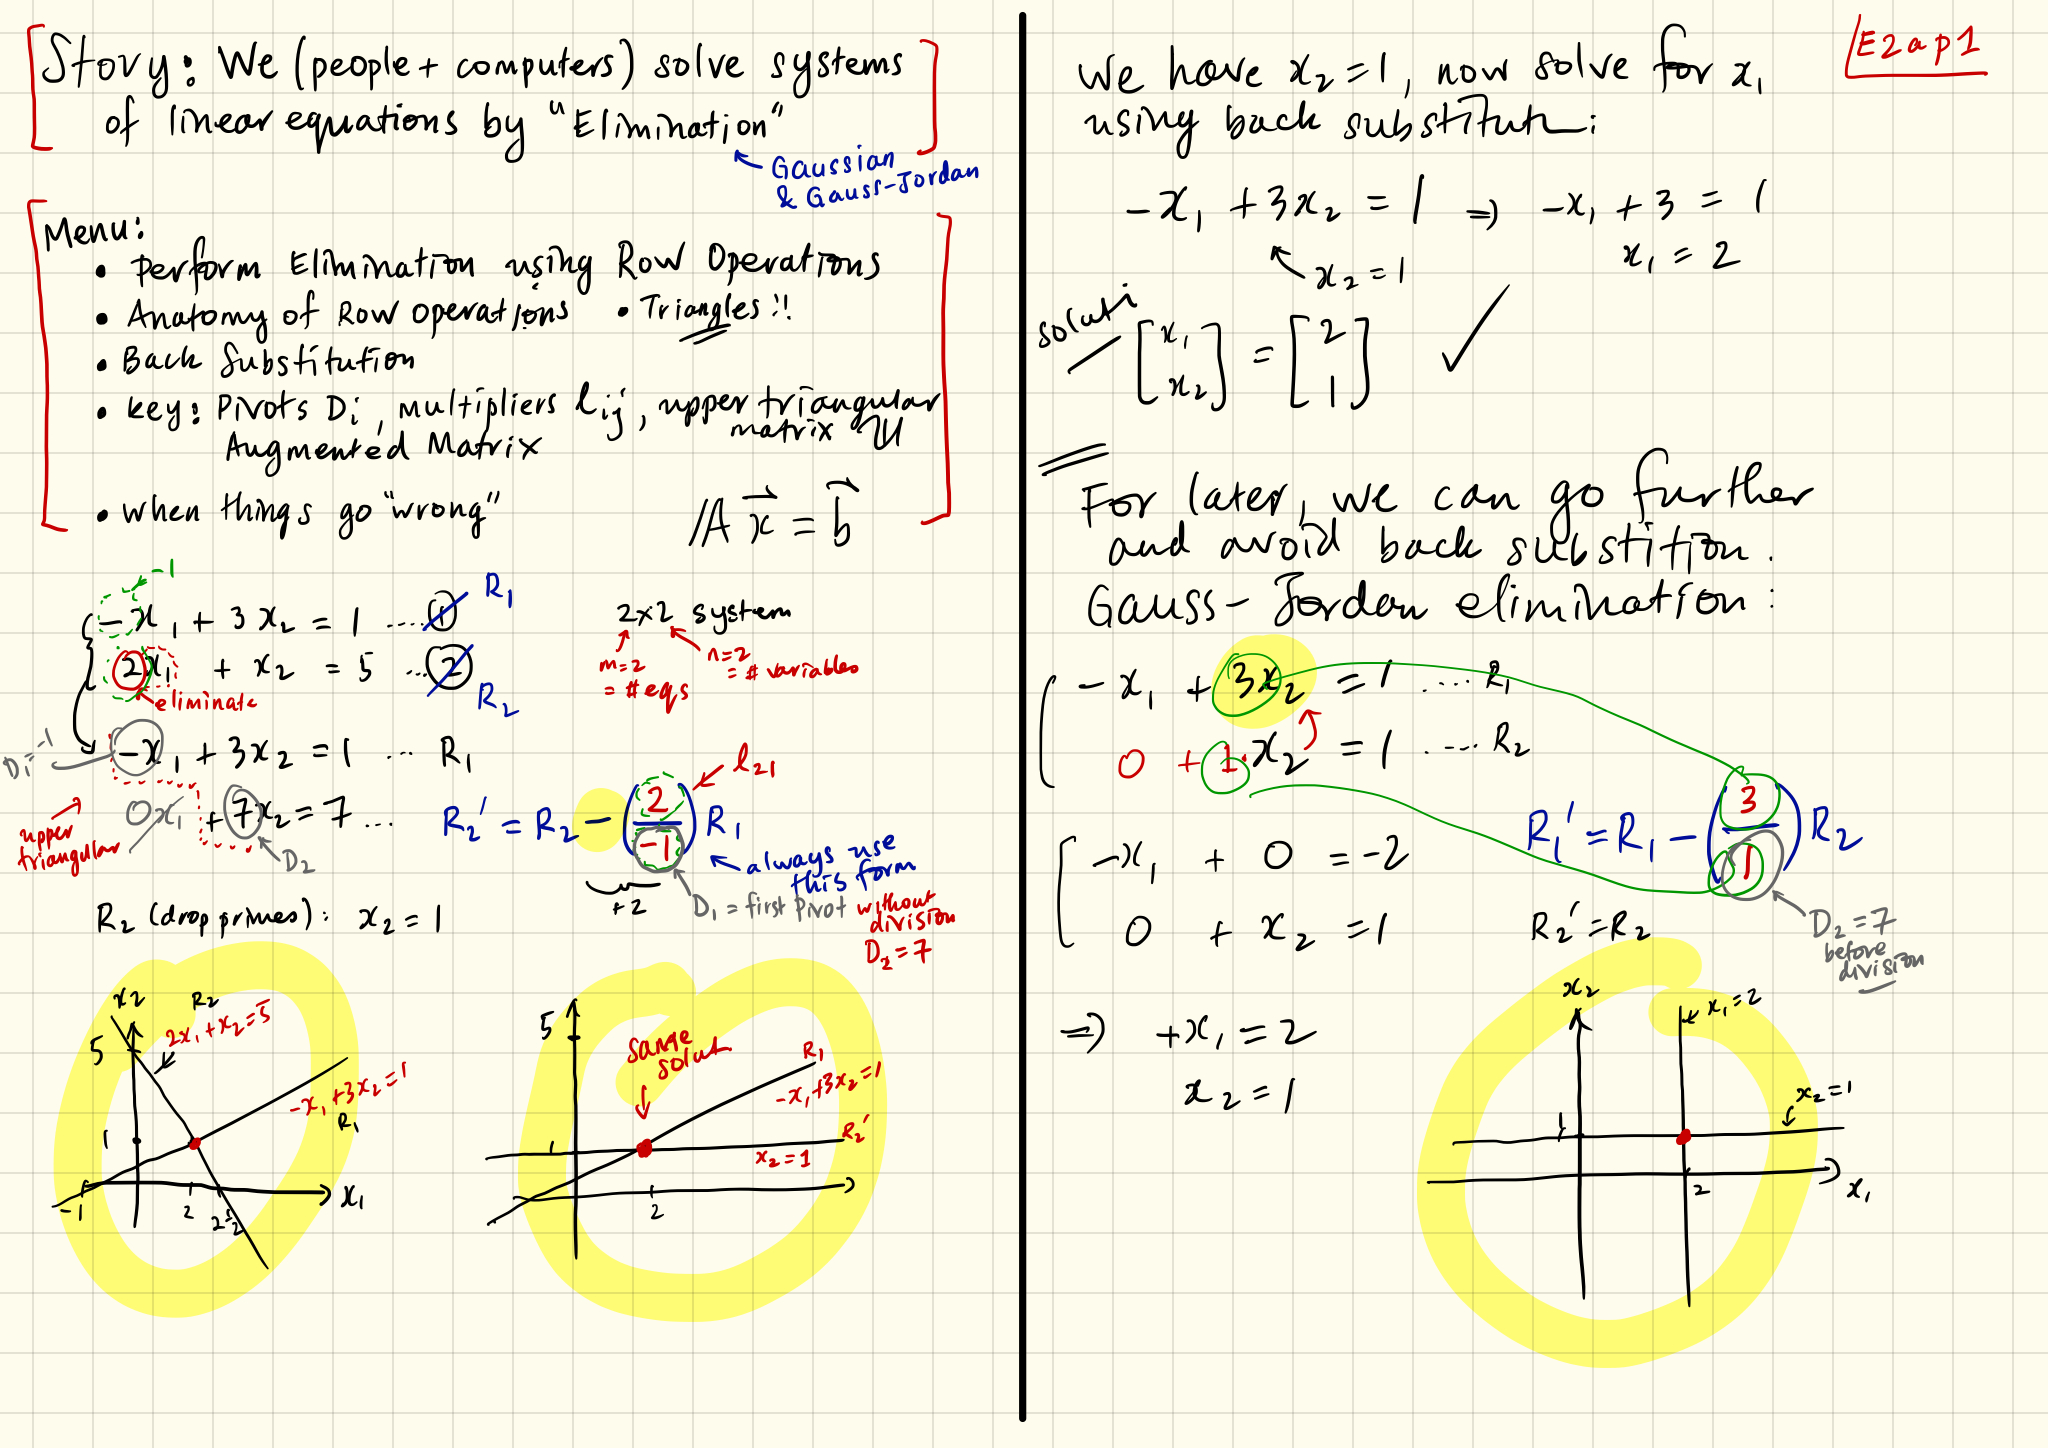 Story: We (people + computers) solve systems
of linear equations by "Elimination"
Gaussian
& Gauss-Jordan
Menu:
• Perform Elimination using Row Operations
• Anatomy of Row operations • Triangles!!
• Back Substitution
• key: Pivots Di, multipliers lij, upper triangular
matrix U
Augmented Matrix
• when things go "wrong"
A x⃗ = b⃗
-1
-x₁ + 3x₂ = 1 ....① R₁
2x₁ + x₂ = 5 ...② R₂
eliminate
2x2 system
m=2
= # eqs
n=2
= # variables
D₁=-1
-x₁ + 3x₂ = 1 ... R₁
0x₁ + 7x₂ = 7 ...
upper
triangular
D₂
R₂' = R₂ - (2/-1) R₁
l₂₁
always use
this form
+2
D₁ = first pivot
without
division
D₂ = 7
R₂ (drop primes): x₂ = 1
x₂
R₂
2x₁ + x₂ = 5
5
-x₁ + 3x₂ = 1
R₁
1
-1
2
x₁
5
same
solut
R₁
-x₁ + 3x₂ = 1
R₂'
x₂ = 1
1
2
E2ap1
we have x₂ = 1, now solve for x₁
using back substitut:
-x₁ + 3x₂ = 1 ⇒ -x₁ + 3 = 1
x₂ = 1
x₁ = 2
soluti
[x₁ x₂] = [2 1] ✓
For later, we can go further
and avoid back substition.
Gauss-Jordan elimination:
-x₁ + 3x₂ = 1 .... R₁
0 + 1·x₂ = 1 .... R₂
R₁' = R₁ - (3/1) R₂
-x₁ + 0 = -2
0 + x₂ = 1
R₂' = R₂
D₂ = 7
before
division
⇒ +x₁ = 2
x₂ = 1
x₂
x₁ = 2
x₂ = 1
1
2
x₁